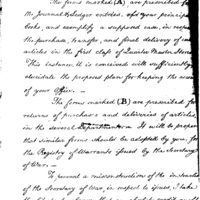 The forms marked (A) are prescribed for
the Journal & Ledger entries of your principal
books, and exemplify a supposed case, in regard to
the purchase, transfer, and final delivery of some
articles in the first class of Quarter Master Stores
This instance, it is conceived will sufficiently
elucidate the proposed plan for keeping the accounts
of your Office.
The forms marked (B) are prescribed for
returns of purchases and deliveries of articles
in the several Departments. It will be proper
that similar forms should be adopted by you for
the Registry of Warrants issued by the Secretary
of War.
To prevent a misconstruction of the
of the Secretary of War in respect to issues, I take